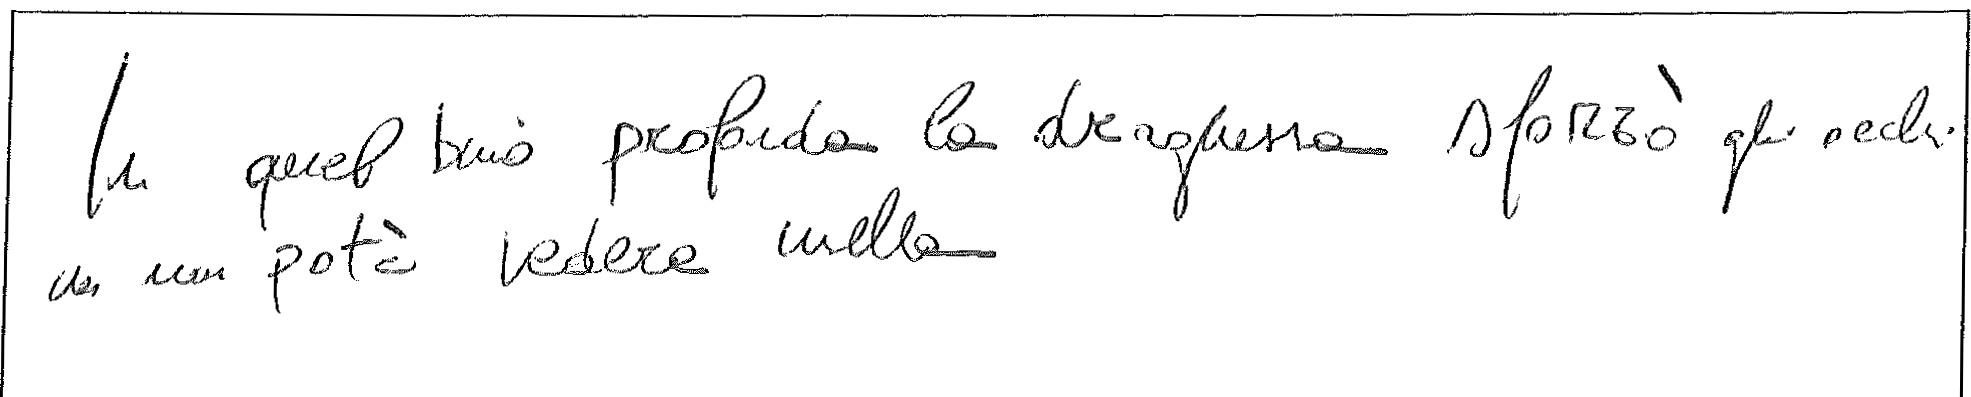 In quel buio profondo la strega sforzò gli occhi
ma non potè vedere nulla